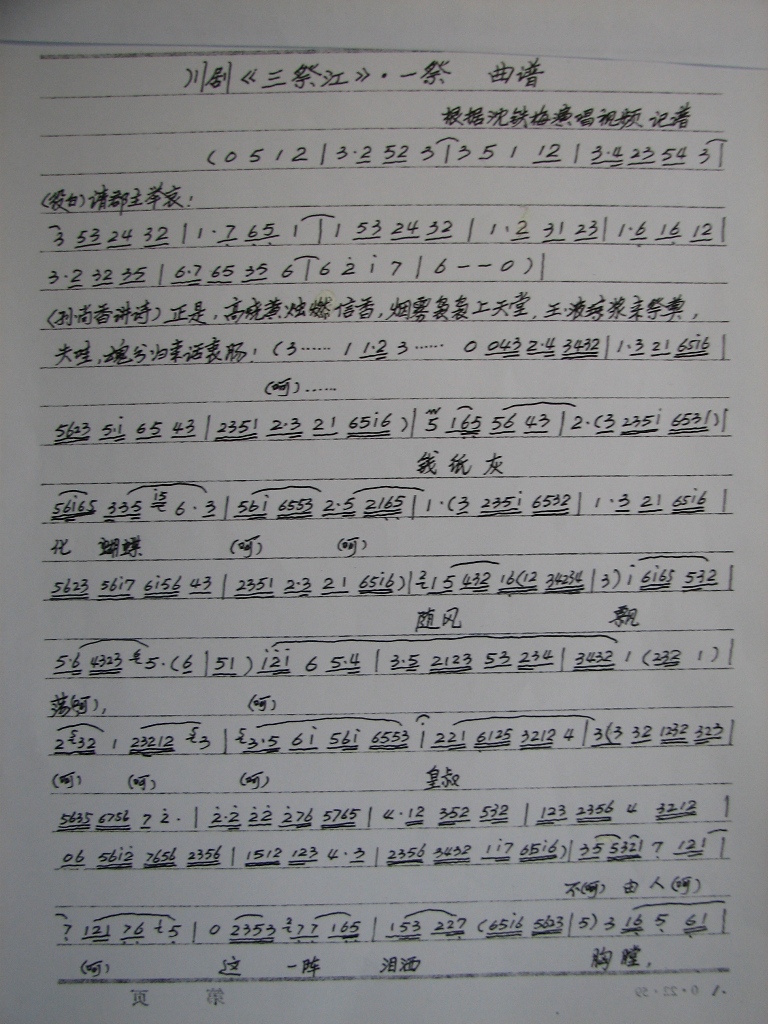 川剧《三祭江》·一祭 曲谱
根据沈铁梅演唱视频 记谱
(0 5 1 2 | 3·2 52 3 | 3 5 1 12 | 3·4 23 54 3 |
请郡主举哀:
3 53 24 32 | 1·7 65 1 | 1 53 24 32 | 1·2 31 23 | 1·6 16 12 |
3·2 32 35 | 6·7 65 35 6 | 6 2̇ i 7 | 6 - - 0 ) |
(孙尚香讲诗) 正是,高烧黄烛燃信香,烟雾袅袅上天堂,玉液琼浆来祭奠,
夫哇,魂兮归来话衷肠: (3 …… 1 1·2 3 …… 0 043 2·4 3432 | 1·3 21 65i6 |
(呵) ……
5623 5·i 65 43 | 2351 2·3 21 65i6 ) | 5 165 56 43 | 2·(3 235i 6531) |
钱 纸 灰
56i65 335 i5 6·3 | 56i 6553 2·5 2165 | 1·(3 235i 6532 | 1·3 21 65i6 |
化 蝴蝶 (呵) (呵)
5623 56i7 6i56 43 | 2351 2·3 21 65i6) | 2 1 5 432 16(12 34234 | 3) i 6i65 532 |
随风 飘
5·6 4323 5·(6 | 51) i2̇i 6 5·4 | 3·5 2123 53 234 | 3432 1 (232 1) |
荡(呵), (呵)
2 32 1 23212 3 | 3·5 6i 56i 6553 | 221 6125 3212 4 | 3(3 32 1232 323 |
(呵) (呵) (呵) 皇叔
5635 6756 7 2̇· | 2̇·2̇ 2̇2̇ 2̇76 5765 | 4·12 352 532 | 123 2356 4 3212 |
06 56i2̇ 7656 2356 | 1512 123 4·3 | 2356 3432 1i7 65i6) | 35 5321 7 121 |
不(呵) 由 人(呵)
7 121 76 5 | 0 2353 77 165 | 153 227 (65i6 5623 | 5) 3 16 5 61 |
(呵) 这 一阵 泪洒 胸膛,
第 页